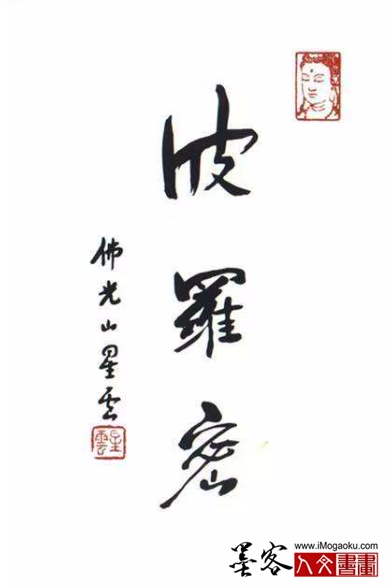 波羅密
佛光山星雲
星雲
墨客
www.iMogaoku.com
人文書畫